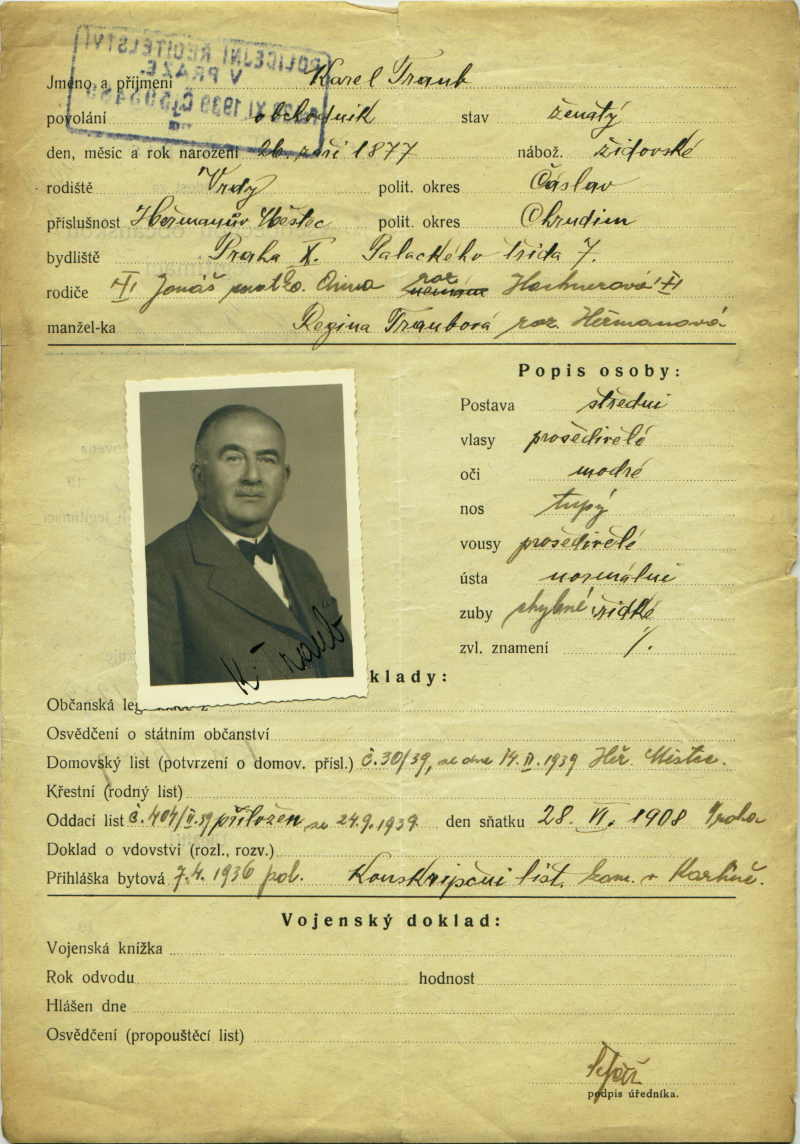 POLICEJNÍ ŘEDITELSTVÍ
V PRAZE.
XI 1939
Jméno a příjmení Karel Traub
povolání obchodník stav ženatý
den, měsíc a rok narození 26. září 1877 nábož. židovské
rodiště Vrdy polit. okres Čáslav
příslušnost Heřmanův Městec polit. okres Chrudim
bydliště Praha X. Palackého třída 7.
rodiče Jonáš matka Anna roz.
manžel-ka Regina Traubová roz. Heřmanová
Popis osoby:
Postava střední
vlasy prošedivělé
oči modré
nos tupý
vousy prošedivělé
ústa normální
zuby chybné řídké
zvl. znamení /.
K. Traub
klady:
Občanská leg
Osvědčení o státním občanství
Domovský list (potvrzení o domov. přísl.) č. 30/39, ze dne 14. II. 1939 Heř. Městec.
Křestní (rodný list)
Oddací list č. 404/II.39 přiložen ze 24.9.1939 den sňatku 28. VI. 1908 Praha
Doklad o vdovství (rozl., rozv.)
Přihláška bytová 7.4. 1936 pol. Konskripční list. kom. v Karlíně.
Vojenský doklad:
Vojenská knížka
Rok odvodu hodnost
Hlášen dne
Osvědčení (propouštěcí list)
podpis úředníka.